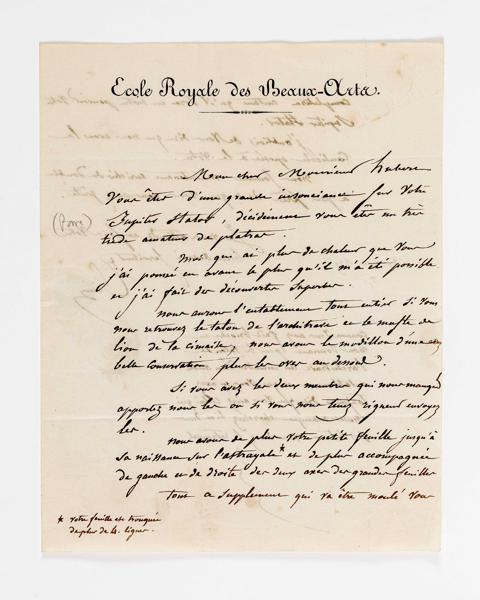 Ecole Royale des Beaux-Arts.
Mon cher Monsieur hubert
Vous êtes d'une grande insouciance sur votre
(Rome)
Jupiter Stator, décidément vous êtes un très
tiède amateur de platras.
moi qui ai plus de chaleur que vous
j'ai poussé en avant le plus qu'il m'a été possible
et j'ai fait des découvertes superbes.
nous aurons l'entablement tout entier si vous
nous retrouvez le talon de l'architrave et le muffle de
lion de la cimaise, nous avons le modillon d'une
belle conservation plus les oves au dessous.
Si vous avez les deux membres qui nous manquent
apportez nous les ou si vous nous tenez rigueur envoyez
les.
nous avons de plus votre petite feuille jusqu'à
sa naissance sur l'astragale* et de plus accompagnée
de gauche et de droite des deux axes des grandes feuilles
tout ce supplement qui va être moulé vous
* votre feuille est tronquée
de plus de 4. lignes.